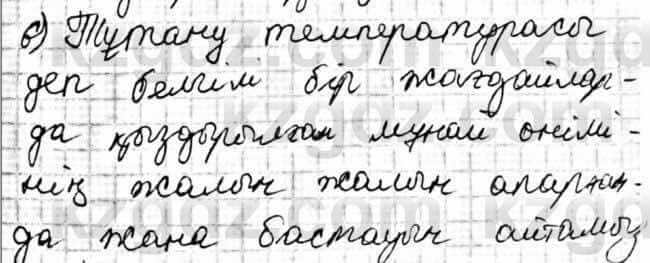 б) Тұтану температурасы
деп белгілі бір жағдайлар-
да қыздырылған мұнай өнімі-
нің жалын жалын апарған-
да жана бастауын айтамыз